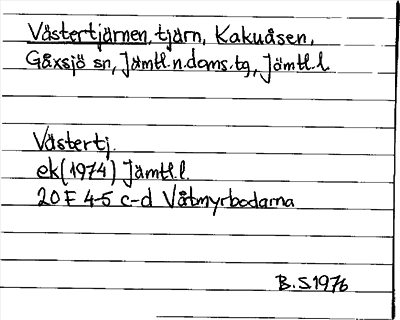 Västertjärnen, tjärn, Kakuåsen,
Gåxsjö sn, Jämtl.n.doms.tg, Jämtl.l.
Västertj.
ek(1974) Jämtl.l.
20F 4-5 c-d Våtmyrbodarna
B.S 1976